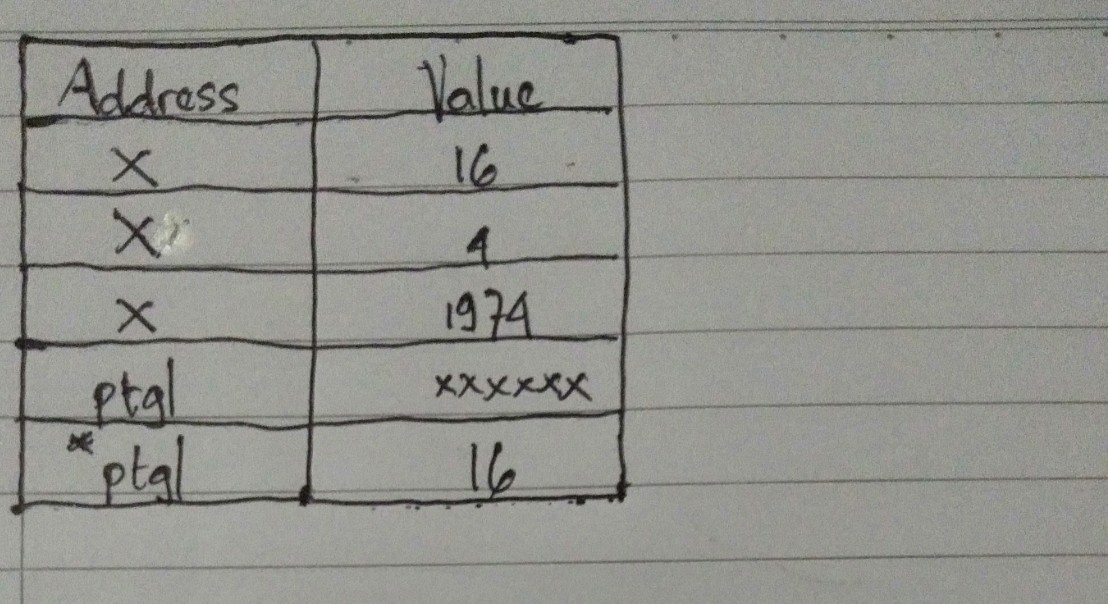 Address Value
X 16
X 4
X 1974
ptgl xxxxxx
*ptgl 16